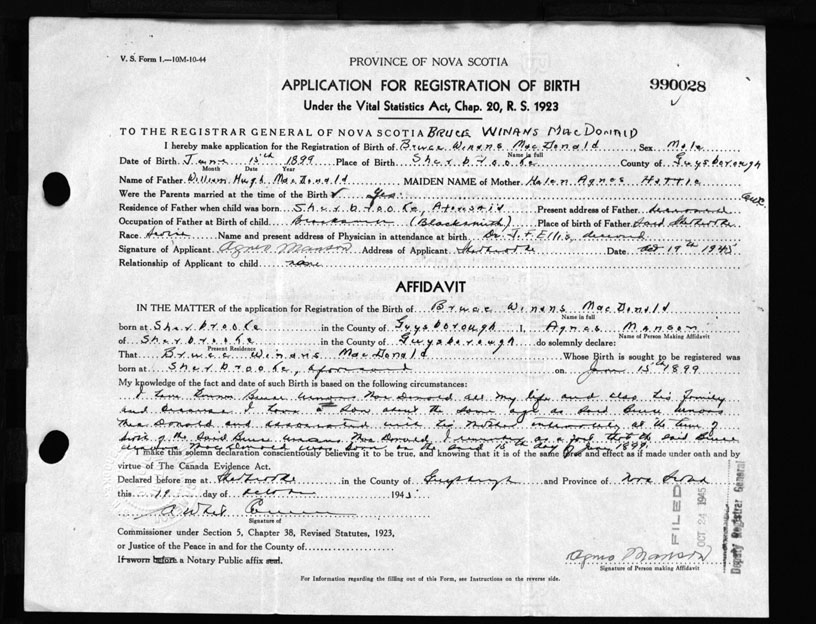 V. S. Form 1.—10M-10-44
PROVINCE OF NOVA SCOTIA
APPLICATION FOR REGISTRATION OF BIRTH
990028
Under the Vital Statistics Act, Chap. 20, R. S. 1923
TO THE REGISTRAR GENERAL OF NOVA SCOTIA BRUCE WINANS MacDONALD
I hereby make application for the Registration of Birth of Bruce Winans MacDonald Sex Male
Name in full
Date of Birth June 15th 1899 Place of Birth Sherbrooke County of Guysborough
Month Date Year
Name of Father William Hugh MacDonald MAIDEN NAME of Mother Helen Agnes Hattie
Were the Parents married at the time of the Birth? Yes
Residence of Father when child was born Sherbrooke, Aforesaid Present address of Father deceased
Occupation of Father at Birth of child (Blacksmith) Place of birth of Father Sherbrooke
Race Name and present address of Physician in attendance at birth Dr. J. F. Ellis, deceased
Signature of Applicant Agnes Manson Address of Applicant Sherbrooke Date Oct 19th 1945
Relationship of Applicant to child none
AFFIDAVIT
IN THE MATTER of the application for Registration of the Birth of Bruce Winans MacDonald
Name in full
born at Sherbrooke in the County of Guysborough I, Agnes Manson
Name of Person Making Affidavit
of Sherbrooke in the County of Guysborough do solemnly declare:
Present Residence
That Bruce Winans MacDonald Whose Birth is sought to be registered was
born at Sherbrooke, aforesaid on June 15th 1899
My knowledge of the fact and date of such Birth is based on the following circumstances:
I have known Bruce Winans MacDonald all my life and also his family
and because I have a son about the same age as said Bruce Winans
MacDonald and associated with his Mother at the time of
birth of the said Bruce Winans MacDonald, I remember as a fact that the said Bruce
Winans MacDonald was born on the said 15th day of June 1899
I make this solemn declaration conscientiously believing it to be true, and knowing that it is of the same force and effect as if made under oath and by
virtue of The Canada Evidence Act.
Declared before me at Sherbrooke in the County of Guysborough and Province of Nova Scotia
this 19 day of October 1945
Signature of
Commissioner under Section 5, Chapter 38, Revised Statutes, 1923,
or Justice of the Peace in and for the County of
If sworn before a Notary Public affix seal.
Agnes Manson
Signature of Person making Affidavit
FILED
OCT 24 1945
Deputy Registrar General
For Information regarding the filling out of this Form, see Instructions on the reverse side.